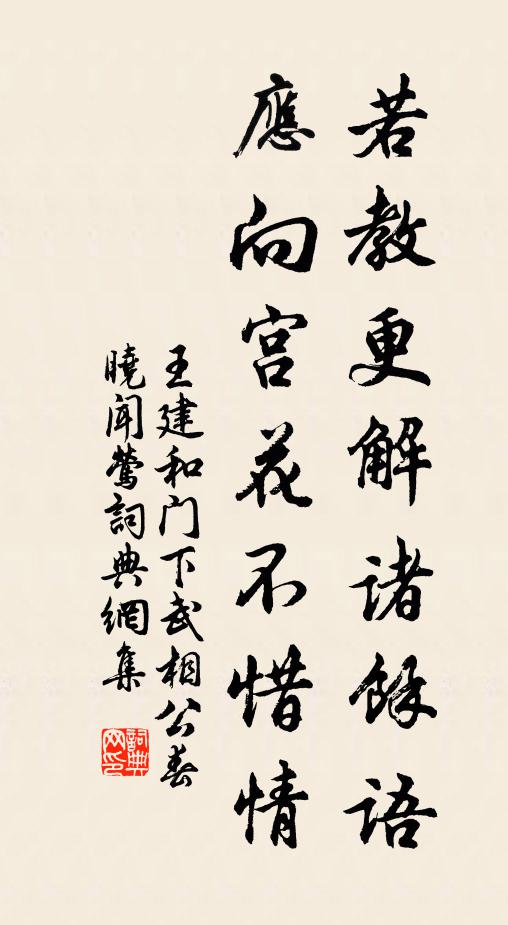 若教更解諸餘語
應向宮花不惜情
王建和门下武相公春
曉聞鶯詞典網集
詞典网印